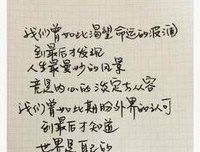 我们曾如此渴望命运的波澜
到最后才发现
人生最曼妙的风景
竟是内心的淡定与从容
我们曾如此期盼外界的认可
到最后才知道
世界是自己的